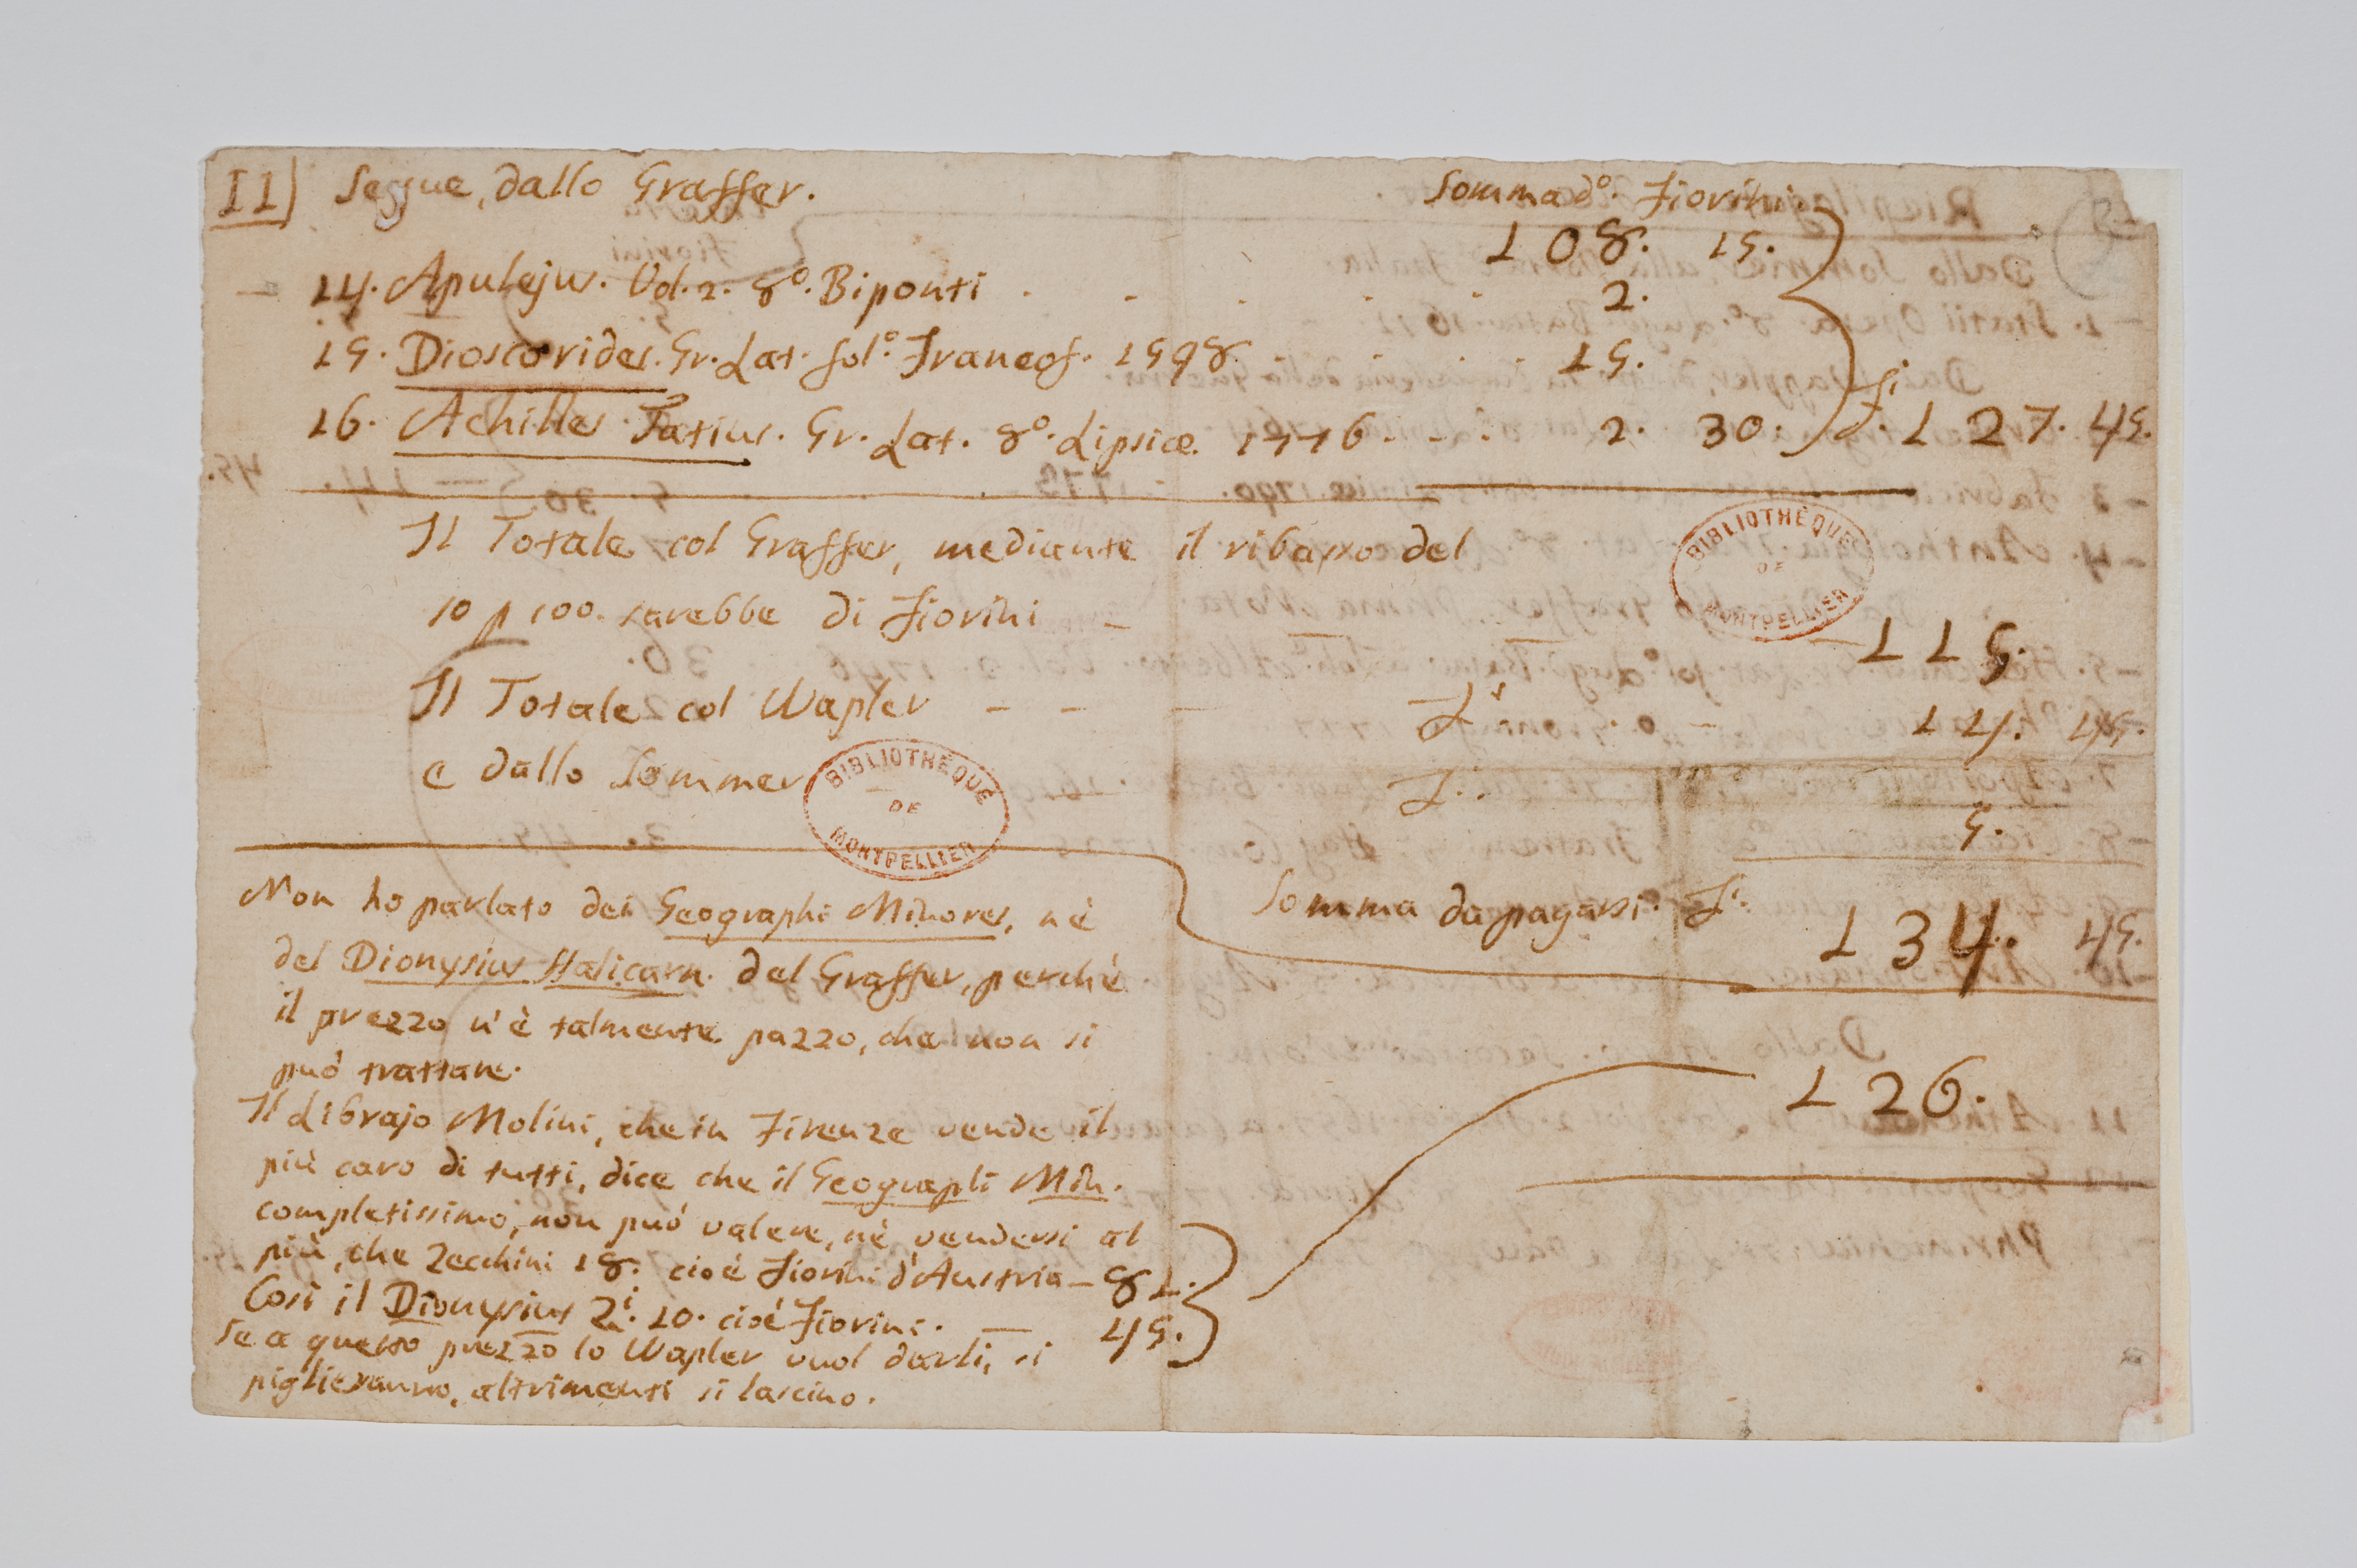 II) Segue, dallo Graffer. Sommado. Fiorini
108. 15.
14. Apulejus. Vol. 2. 8o. Biponti . . . . . 2.
15. Dioscorides. Gr. Lat. fol.o Francof. 1598. 15.
16. Achilles Tatius. Gr. Lat. 8o. Lipsiæ. 1776 - - . 2. 30. fi. 127. 45.
Il Totale col Graffer, mediante il ribasso del
10 p 100. sarebbe di Fiorini - 115.
Il Totale col Wapler - - - Fi. 14. 45.
e dallo Sommer - F.. 5.
Somma da pagarsi. Fi. 134. 45.
Non ho parlato dei Geographi Minores, nè
del Dionysius Halicarn. del Graffer, perchè
il prezzo n'è talmente pazzo, che non si
può trattare.
Il Librajo Molini, che in Firenze vende il
più caro di tutti, dice che il Geographi Min.
completissimo, non può valere, nè vendersi al
più, che Zecchini 18. cioè Fiorini d'Austria - 81.
Così il Dionysius Zi. 10. cioè Fiorini. — 45.
126.
Se a questo prezzo lo Wapler vuol darli, si
piglieranno, altrimenti si lascino.
BIBLIOTHÈQUE DE MONTPELLIER
BIBLIOTHÈQUE DE MONTPELLIER